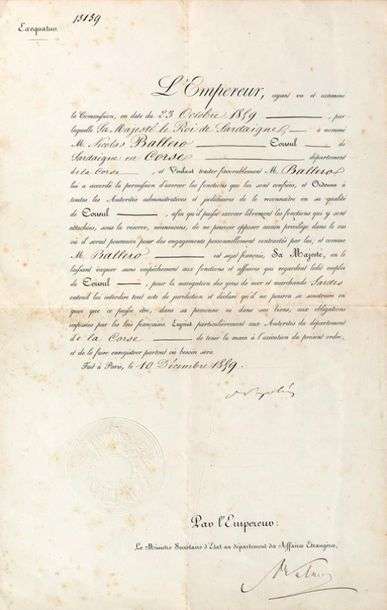 13159
Exequatur.
L'Empereur, ayant vu et examiné
la Commission, en date du 23 Octobre 1859, par
laquelle Sa Majesté le Roi de Sardaigne, a nommé
M. Nicolas Battero Consul de
Sardaigne en Corse département
de la Corse, et Voulant traiter favorablement M. Battero
lui a accordé la permission d'exercer les fonctions qui lui sont confiées, et Ordonne à
toutes les Autorités administratives et judiciaires de le reconnaître en sa qualité
de Consul, afin qu'il puisse exercer librement les fonctions qui y sont
attachées, sous la réserve, néanmoins, de ne pouvoir opposer aucun privilège dans le cas
où il serait poursuivi pour des engagements personnellement contractés par lui, et comme
M. Battero est sujet français, Sa Majesté, en le
laissant vaquer sans empêchement aux fonctions et affaires qui regardent ledit emploi
de Consul, pour la navigation des gens de mer et marchands Sardes
entend lui interdire tout acte de juridiction et déclare qu'il ne pourra se soustraire en
quoi que ce puisse être, dans sa personne ou dans ses biens, aux obligations
imposées par les lois françaises. Enjoint particulièrement aux Autorités du département
de la Corse de tenir la main à l'exécution du présent ordre,
et de le faire enregistrer partout où besoin sera.
Fait à Paris, le 10 Décembre 1859.
Par l'Empereur:
Le Ministre Secrétaire d'Etat au département des Affaires Etrangères,